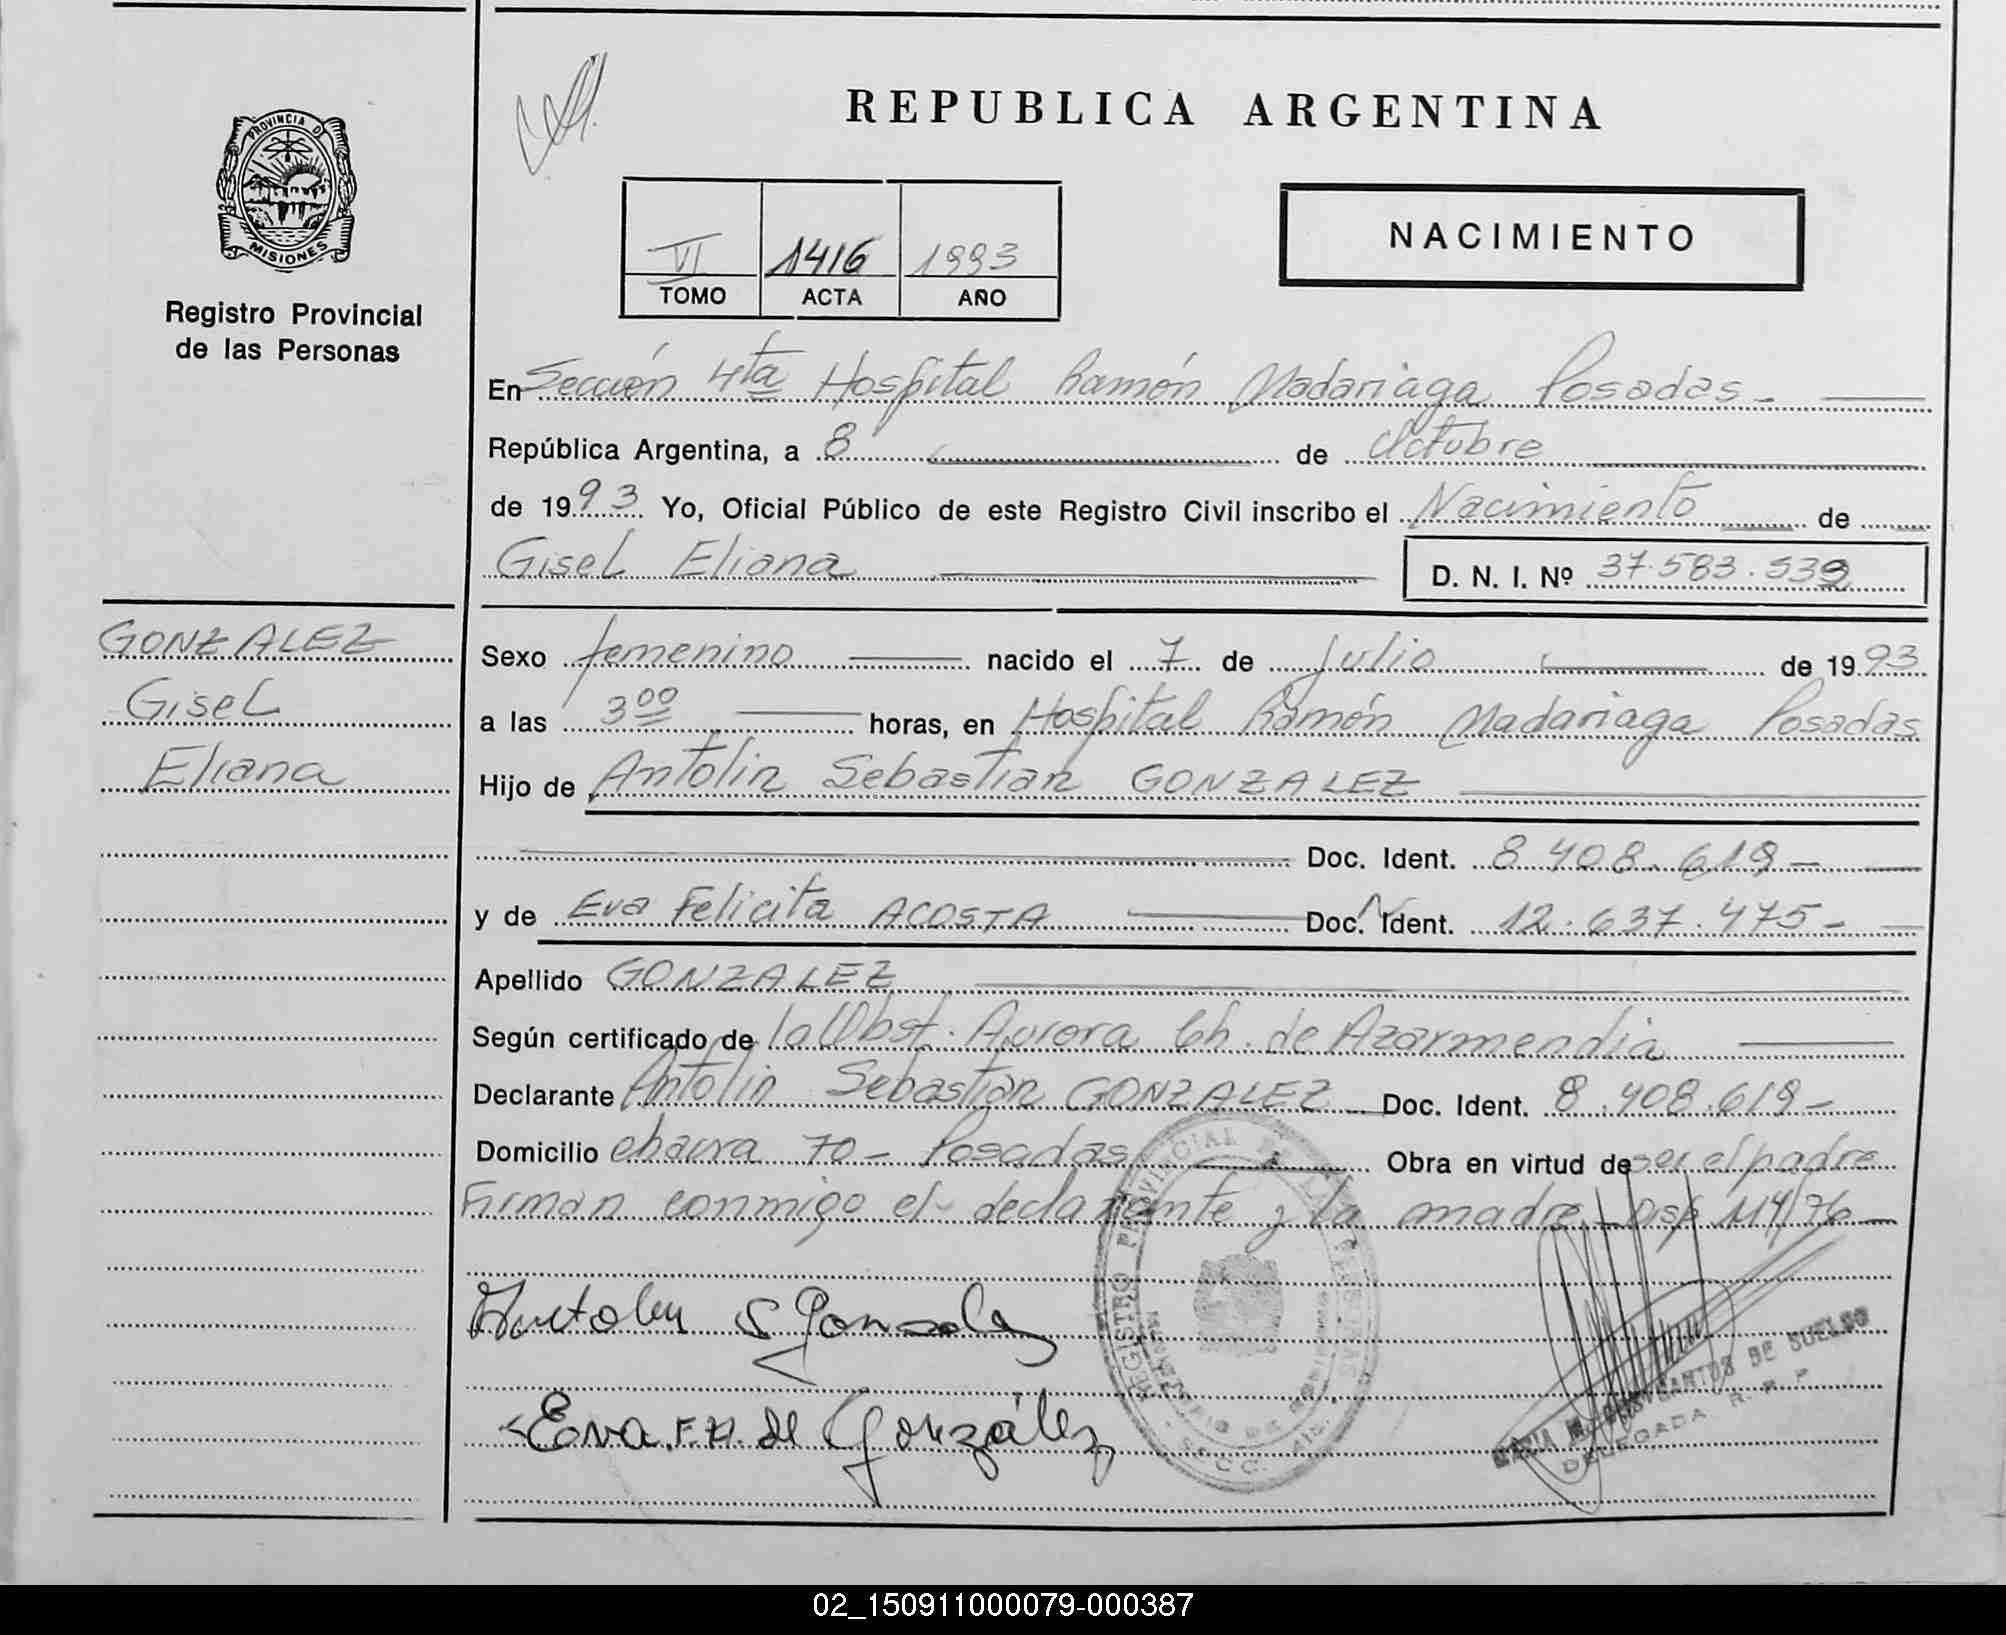 REPUBLICA ARGENTINA
PROVINCIA D
MISIONES
Registro Provincial
de las Personas
VI 1416 1993
TOMO ACTA AÑO
NACIMIENTO
En Sección 4ta Hospital Ramón Madariaga Posadas-
República Argentina, a 8 de Octubre
de 1993 Yo, Oficial Público de este Registro Civil inscribo el Nacimiento de
Gisel Eliana D. N. I. Nº 37.583.539
GONZALEZ
Gisel
Eliana
Sexo femenino nacido el 7 de Julio de 1993
a las 3 00 horas, en Hospital Ramón Madariaga Posadas
Hijo de Antolin Sebastian GONZALEZ
Doc. Ident. 8.408.619-
y de Eva Felicita ACOSTA Doc. Ident. 12.637.475-
Apellido GONZALEZ
Según certificado de la Obst. Aurora Ch. de Azarmendia
Declarante Antolin Sebastian GONZALEZ Doc. Ident. 8.408.619-
Domicilio chacra 70- Posadas Obra en virtud de ser el padre
Firman conmigo el declarante y la madre- Disp 114/76
Antolin S Gonzalez
Eva.F.A. de González
REGISTRO PROVINCIAL DE LAS PERSONAS
MARIA SANTOS DE SUELDO
DELEGADA R. P. P
02_150911000079-000387